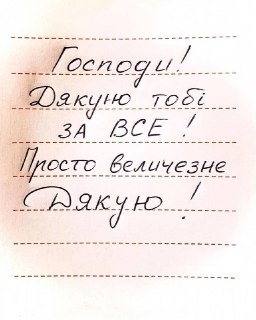 Господи!
Дякую тобі
ЗА ВСЕ!
Просто величезне
Дякую!